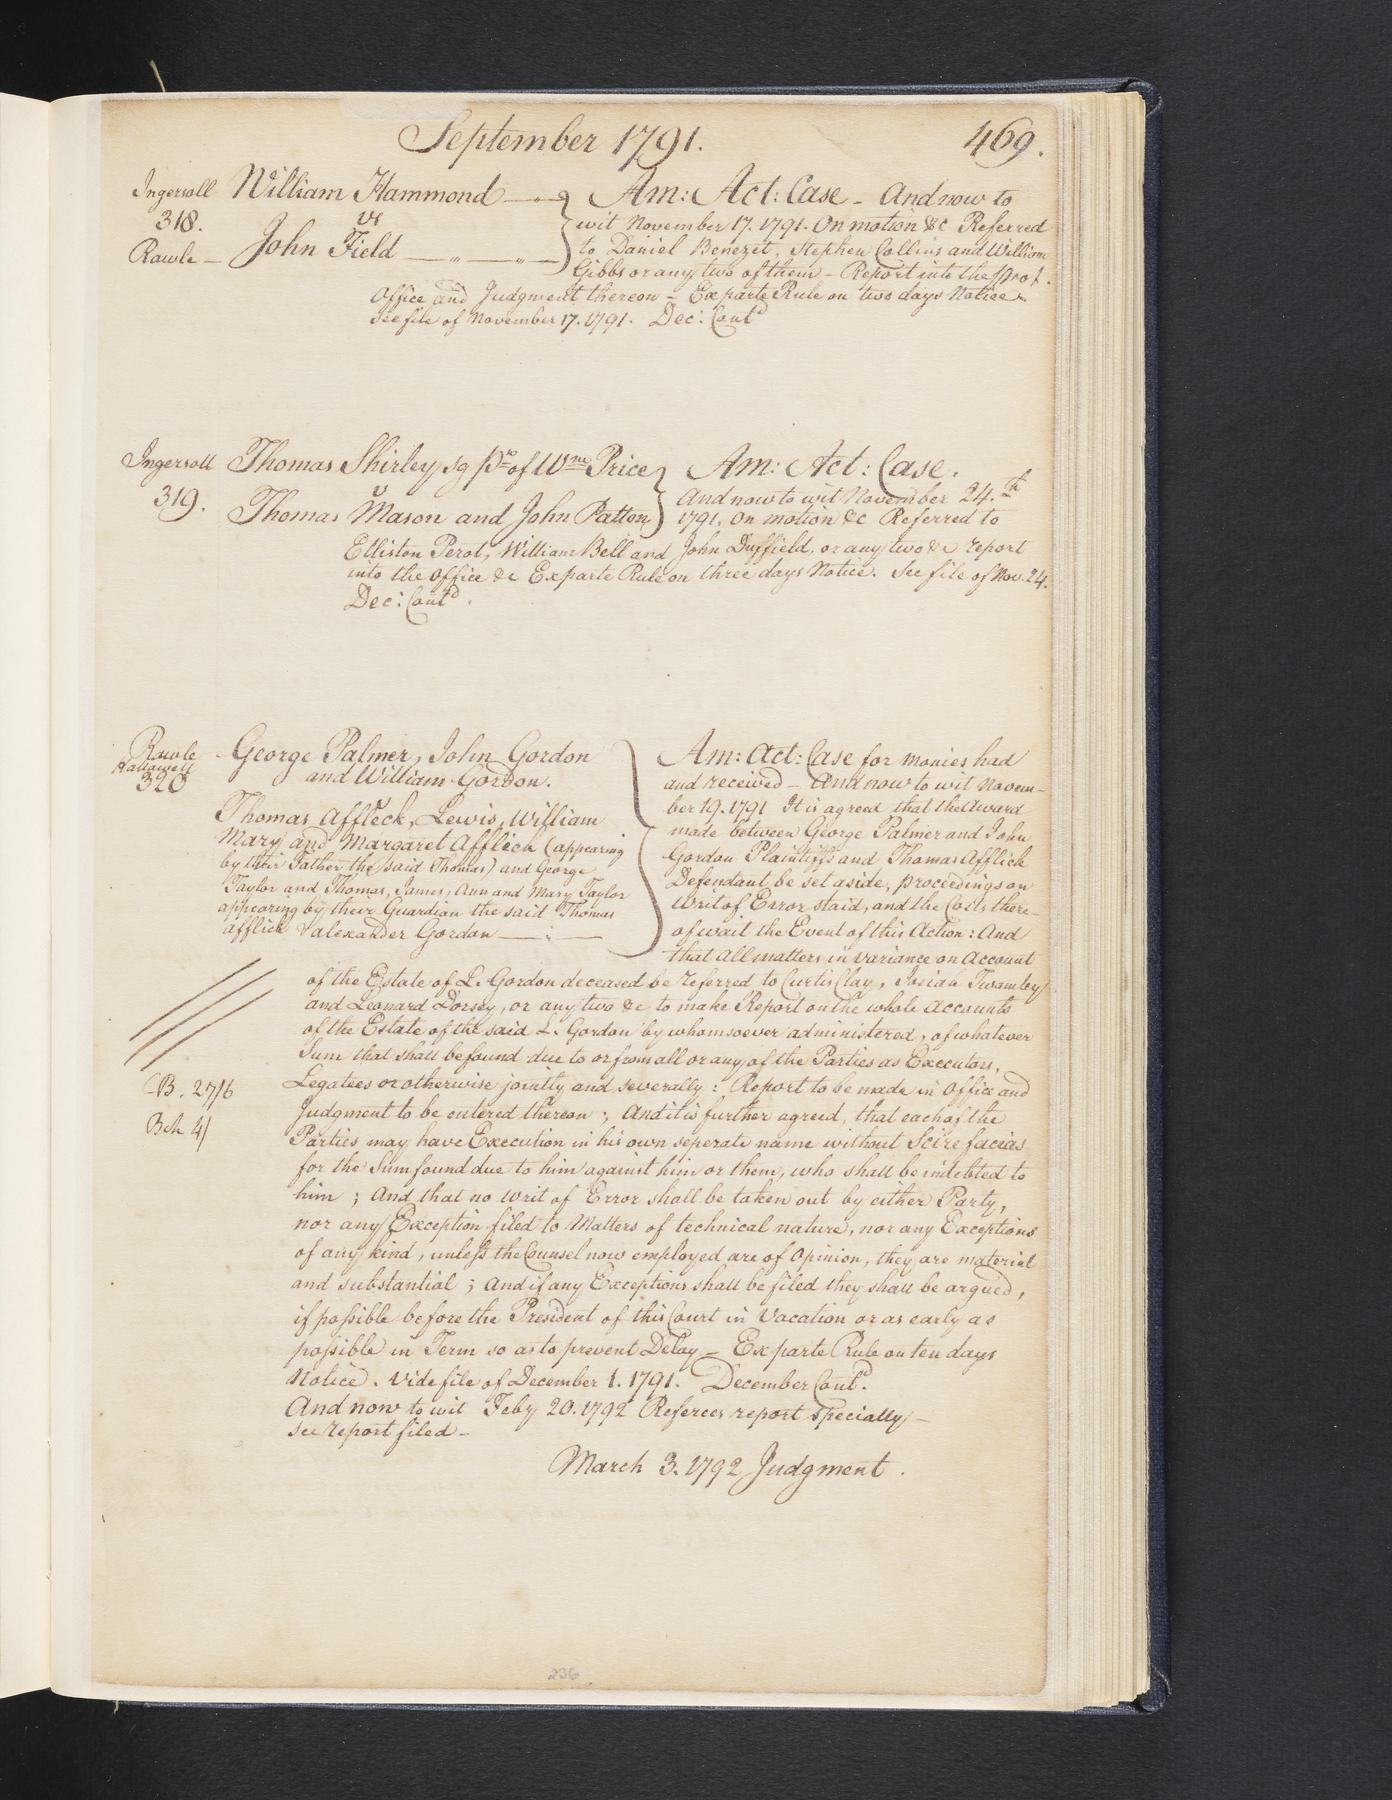 September 1791.
469.
Ingersoll William Hammond
318. vs
Rawle John Field
Am: Act: Case - And now to
wit November 17. 1791. On motion &c Referred
to Daniel Benezet, Stephen Collins and William
Gibbs or any two of them - Report into the Prot.
Office and Judgment thereon - Ex parte Rule on two days Notice
see file of November 17. 1791. Dec: Contd
Ingersoll Thomas Shirley sg Pr of Wm Price
319. v
Thomas Mason and John Patton
Am: Act: Case.
And now to wit November 24.th
1791. On motion &c Referred to
Elliston Perot, William Bell and John Duffield, or any two &c report
into the Office &c Ex parte Rule on three days Notice. See file of Nov. 24.
Dec: Contd.
Rawle
Hallowell
320
George Palmer, John Gordon
and William Gordon.
v
Thomas Affleck, Lewis, William
Mary and Margaret Afflick (appearing
by their Father the said Thomas) and George
Taylor and Thomas, James, Ann and Mary Taylor
appearing by their Guardian the said Thomas
Afflick & Alexander Gordon
Am: Act: Case for monies had
and received - And now to wit Novem-
ber 19. 1791 It is agreed that the Award
made between George Palmer and John
Gordon Plaintiffs and Thomas Afflick
Defendant be set aside, proceedings on
Writ of Error staid, and the Costs there-
of wait the Event of this Action: And
that all matters in variance on Account
of the Estate of L. Gordon deceased be referred to Curtis Clay, Josiah Twamley
and Leonard Dorsey, or any two &c to make Report on the whole Accounts
of the Estate of the said L. Gordon by whomsoever administered, of whatever
Sum that shall be found due to or from all or any of the Parties as Executors,
Legatees or otherwise jointly and severally: Report to be made in Office and
Judgment to be entered thereon; And it is further agreed, that each of the
Parties may have Execution in his own seperate name without Scire facias
for the Sum found due to him against him or them, who shall be indebted to
him; And that no Writ of Error shall be taken out by either Party,
nor any Exception filed to Matters of technical nature, nor any Exceptions
of any kind, unless the Counsel now employed are of Opinion, they are material
and substantial; And if any Exceptions shall be filed they shall be argued,
if possible before the President of this Court in Vacation or as early as
possible in Term so as to prevent Delay - Ex parte Rule on ten days
Notice. Vide file of December 1. 1791. December Contd.
And now to wit Feby 20. 1792 Referees report specially -
see report filed -
March 3. 1792 Judgment.
B. 27/6
Bch 4/
236